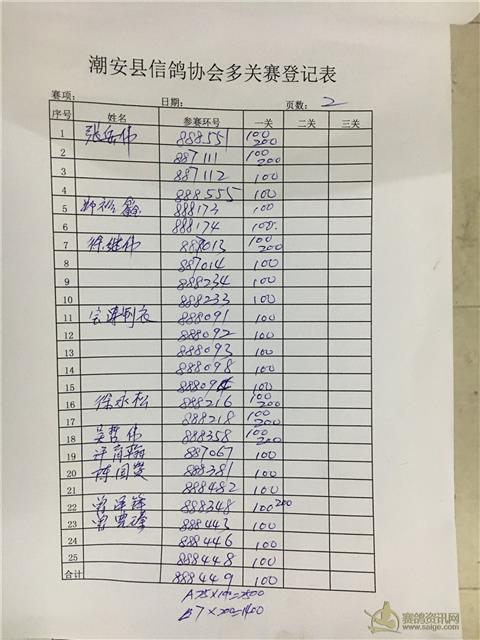 潮安县信鸽协会多关赛登记表
赛项: 日期: 页数: 2
序号 姓名 参赛环号 一关 二关 三关
1 张岳伟 888551 100 200
2 887111 100 200
3 887112 100
4 888555 100
5 888173 100
6 888174 100
7 徐继伟 887013 100 200
8 887014 100
9 888234 100
10 888233 100
11 888091 100
12 888092 100
13 888093 100
14 888098 100
15 888094 100
16 徐永松 888216 100 200
17 888218 100 200
18 吴哲伟 888358 100 200
19 887067 100
20 888381 100
21 888482 100
22 888348 100 200
23 888443 100
24 888446 100
25 888448 100
合计 888449 100
A 25×100=2500
B 7×200=1400
赛鸽资讯网
www.saige.com